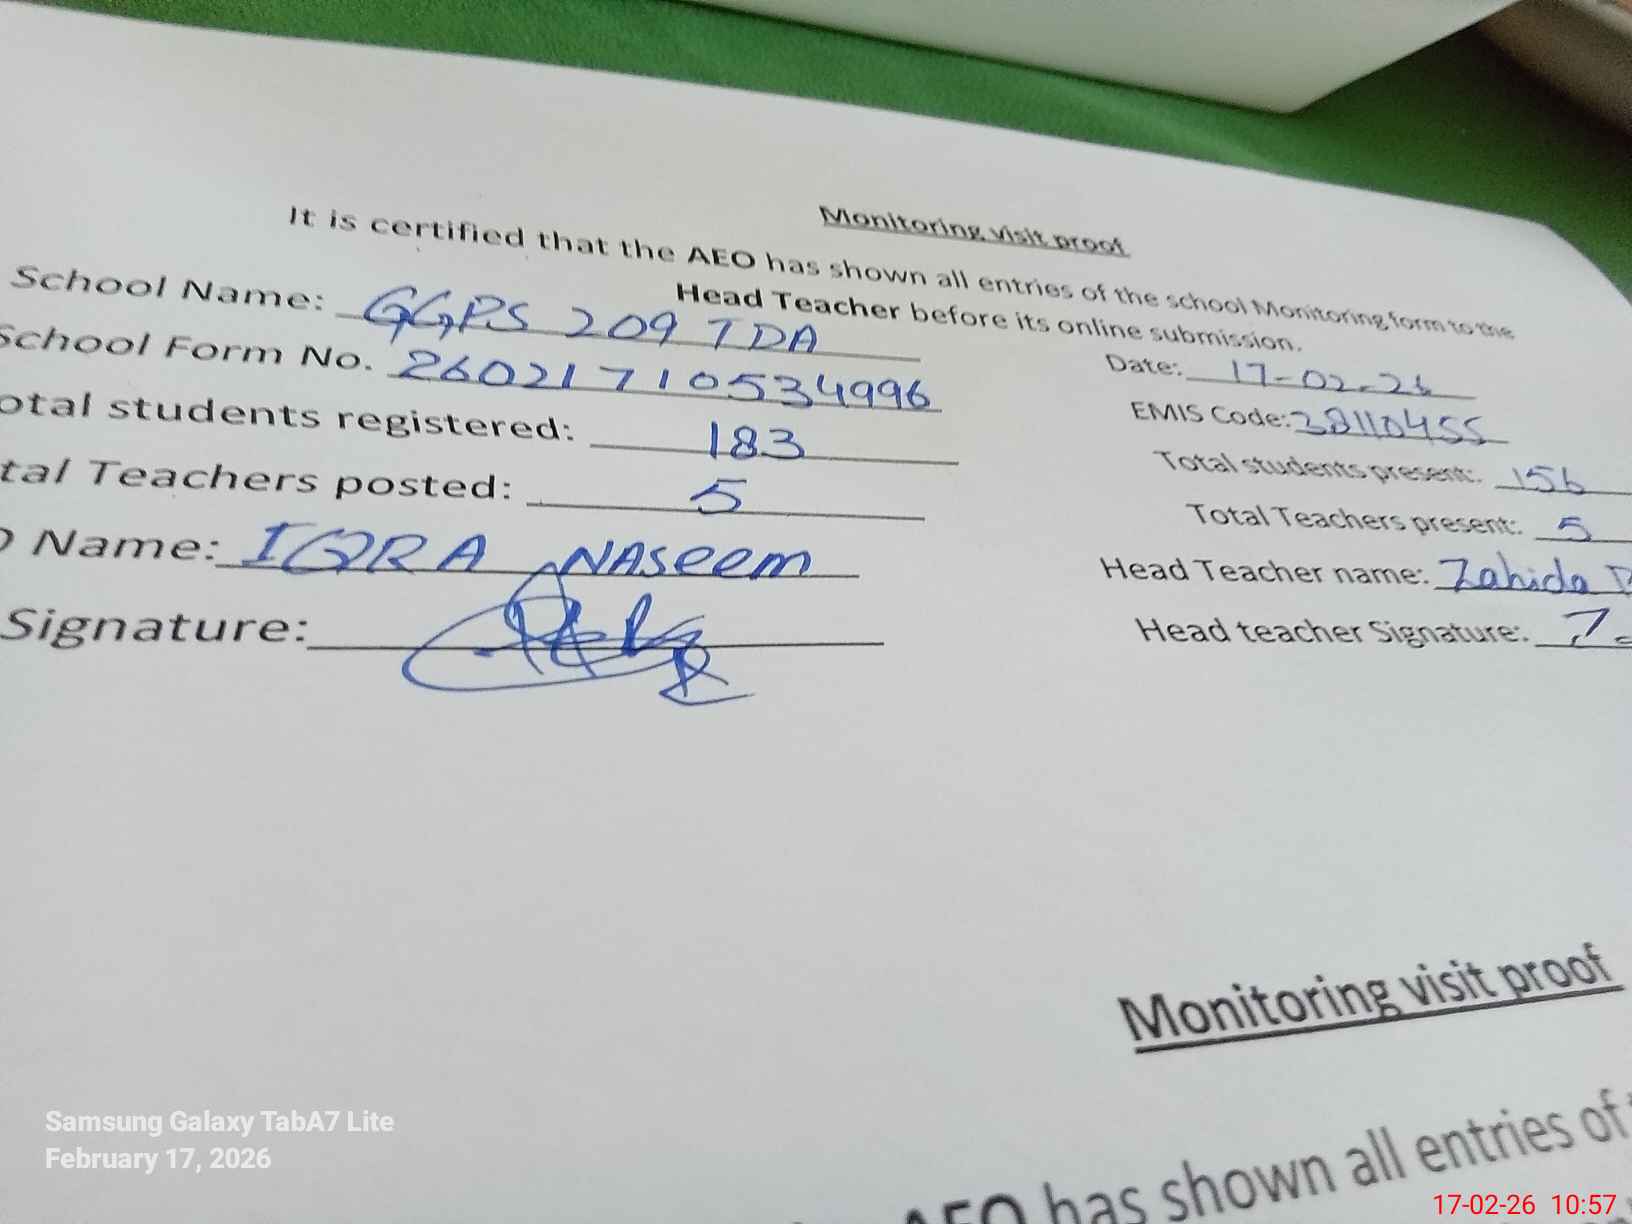 Monitoring visit proof
It is certified that the AEO has shown all entries of the school Monitoring form to the
Head Teacher before its online submission.
School Name: GGPS 209 TDA
Date: 17-02-26
School Form No. 26021710534996
EMIS Code: 38110455
otal students registered: 183
Total students present: 156
tal Teachers posted: 5
Total Teachers present: 5
O Name: IQRA NASeem
Head Teacher name: Zahida
Signature:
Head teacher Signature:
Monitoring visit proof
AEO has shown all entries of
Samsung Galaxy TabA7 Lite
February 17, 2026
17-02-26 10:57